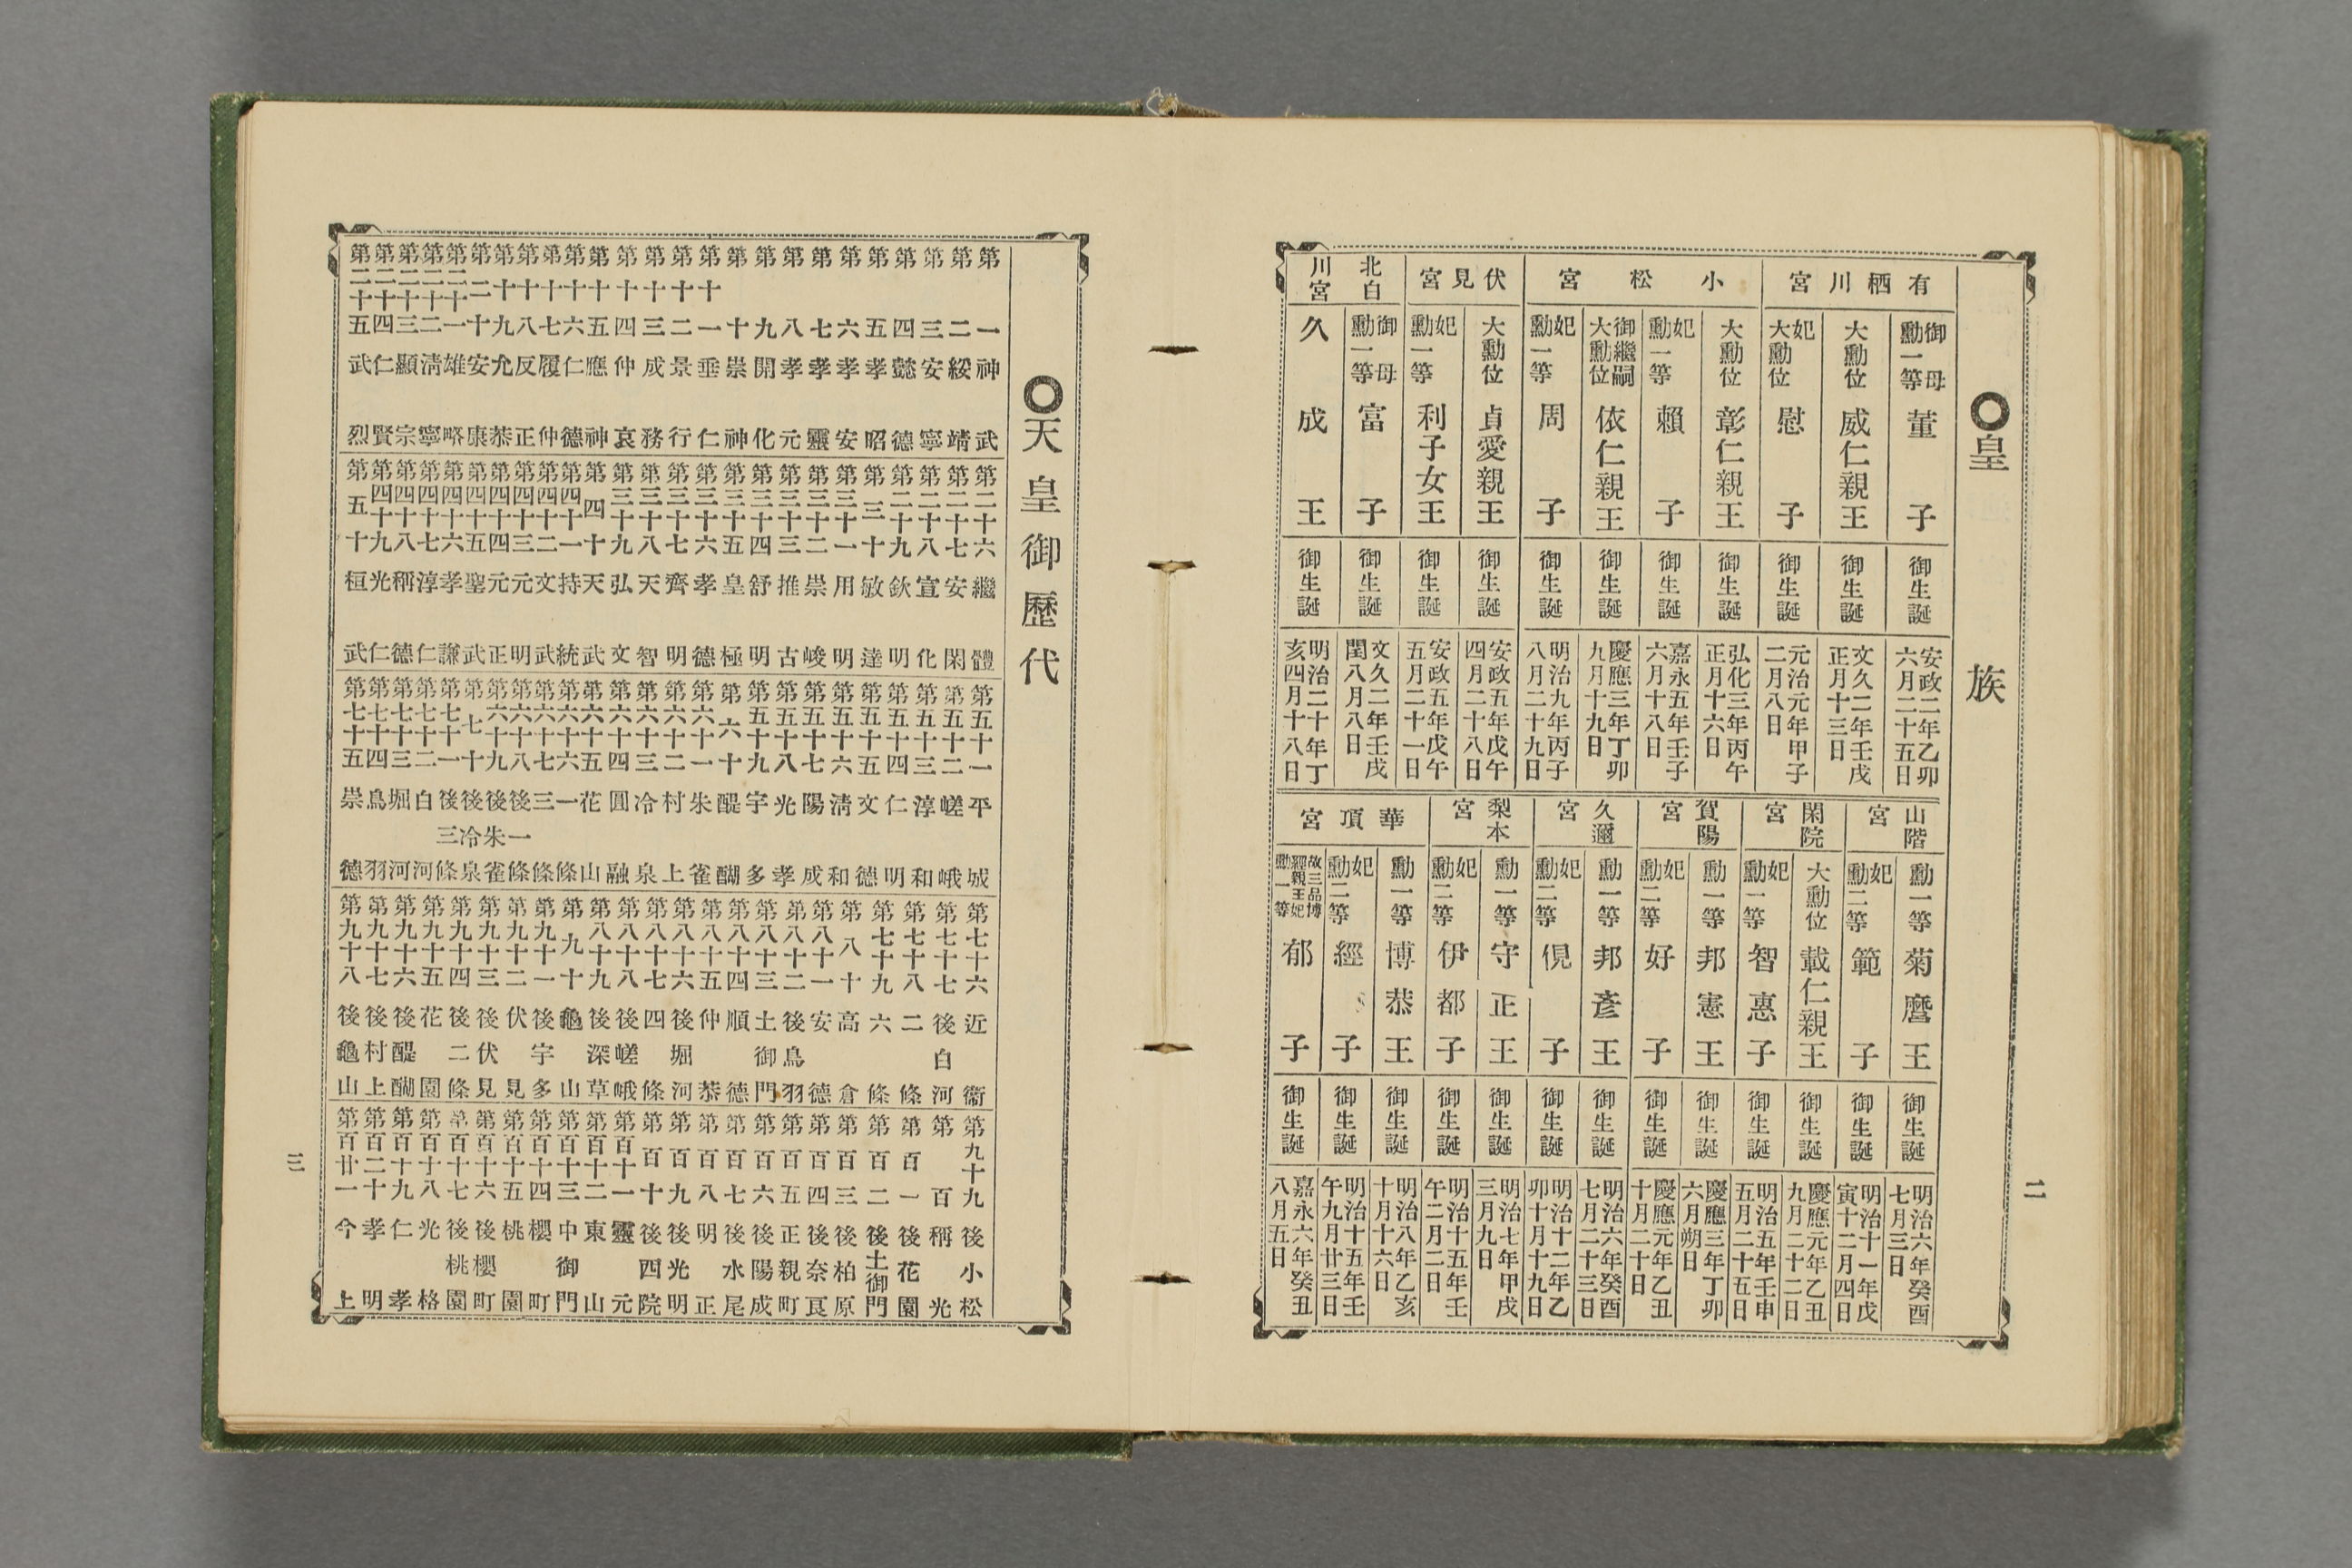 ○皇族
有栖川宮
御母勳一等 董子 御生誕 安政二年乙卯六月二十五日
大勳位 威仁親王 御生誕 文久二年壬戌正月十三日
妃大勳位 慰子 御生誕 元治元年甲子二月八日
小松宮
大勳位 彰仁親王 御生誕 弘化三年丙午正月十六日
妃勳一等 賴子 御生誕 嘉永五年壬子六月十八日
御繼嗣大勳位 依仁親王 御生誕 慶應三年丁卯九月十九日
妃勳一等 周子 御生誕 明治九年丙子八月二十九日
伏見宮
大勳位 貞愛親王 御生誕 安政五年戊午四月二十八日
妃勳一等 利子女王 御生誕 安政五年戊午五月二十一日
北白川宮
御母勳一等 富子 御生誕 文久二年壬戌閏八月八日
久成王 御生誕 明治二十年丁亥四月十八日
山階宮
勳一等 菊麿王 御生誕 明治六年癸酉七月三日
妃勳二等 範子 御生誕 明治十一年戊寅十二月四日
閑院宮
大勳位 載仁親王 御生誕 慶應元年乙丑九月二十二日
妃勳一等 智惠子 御生誕 明治五年壬申五月二十五日
賀陽宮
勳一等 邦憲王 御生誕 慶應三年丁卯六月朔日
妃勳二等 好子 御生誕 慶應元年乙丑十月二十日
久邇宮
勳一等 邦彥王 御生誕 明治六年癸酉七月二十三日
妃勳二等 俔子 御生誕 明治十二年乙卯十月十九日
梨本宮
勳一等 守正王 御生誕 明治七年甲戌三月九日
妃勳二等 伊都子 御生誕 明治十五年壬午二月二日
華頂宮
勳一等 博恭王 御生誕 明治八年乙亥十月十六日
妃勳二等 經子 御生誕 明治十五年壬午九月廿三日
故三品博經親王妃勳一等 郁子 御生誕 嘉永六年癸丑八月五日
二
○天皇御歷代
第一 神武
第二 綏靖
第三 安寧
第四 懿德
第五 孝昭
第六 孝安
第七 孝靈
第八 孝元
第九 開化
第十 崇神
第十一 垂仁
第十二 景行
第十三 成務
第十四 仲哀
第十五 應神
第十六 仁德
第十七 履仲
第十八 反正
第十九 允恭
第二十 安康
第二十一 雄略
第二十二 淸寧
第二十三 顯宗
第二十四 仁賢
第二十五 武烈
第二十六 繼體
第二十七 安閑
第二十八 宣化
第二十九 欽明
第三十 敏達
第三十一 用明
第三十二 崇峻
第三十三 推古
第三十四 舒明
第三十五 皇極
第三十六 孝德
第三十七 齊明
第三十八 天智
第三十九 弘文
第四十 天武
第四十一 持統
第四十二 文武
第四十三 元明
第四十四 元正
第四十五 聖武
第四十六 孝謙
第四十七 淳仁
第四十八 稱德
第四十九 光仁
第五十 桓武
第五十一 平城
第五十二 嵯峨
第五十三 淳和
第五十四 仁明
第五十五 文德
第五十六 淸和
第五十七 陽成
第五十八 光孝
第五十九 宇多
第六十 醍醐
第六十一 朱雀
第六十二 村上
第六十三 冷泉
第六十四 圓融
第六十五 花山
第六十六 一條
第六十七 三條
第六十八 後一條
第六十九 後朱雀
第七十 後冷泉
第七十一 後三條
第七十二 白河
第七十三 堀河
第七十四 鳥羽
第七十五 崇德
第七十六 近衞
第七十七 後白河
第七十八 二條
第七十九 六條
第八十 高倉
第八十一 安德
第八十二 後鳥羽
第八十三 土御門
第八十四 順德
第八十五 仲恭
第八十六 後堀河
第八十七 四條
第八十八 後嵯峨
第八十九 後深草
第九十 龜山
第九十一 後宇多
第九十二 伏見
第九十三 後伏見
第九十四 後二條
第九十五 花園
第九十六 後醍醐
第九十七 後村上
第九十八 後龜山
第九十九 後小松
第百 稱光
第百一 後花園
第百二 後土御門
第百三 後柏原
第百四 後奈良
第百五 正親町
第百六 後陽成
第百七 後水尾
第百八 明正
第百九 後光明
第百十 後四院
第百十一 靈元
第百十二 東山
第百十三 中御門
第百十四 櫻町
第百十五 桃園
第百十六 後櫻町
第百十七 後桃園
第百十八 光格
第百十九 仁孝
第百二十 孝明
第百廿一 今上
三